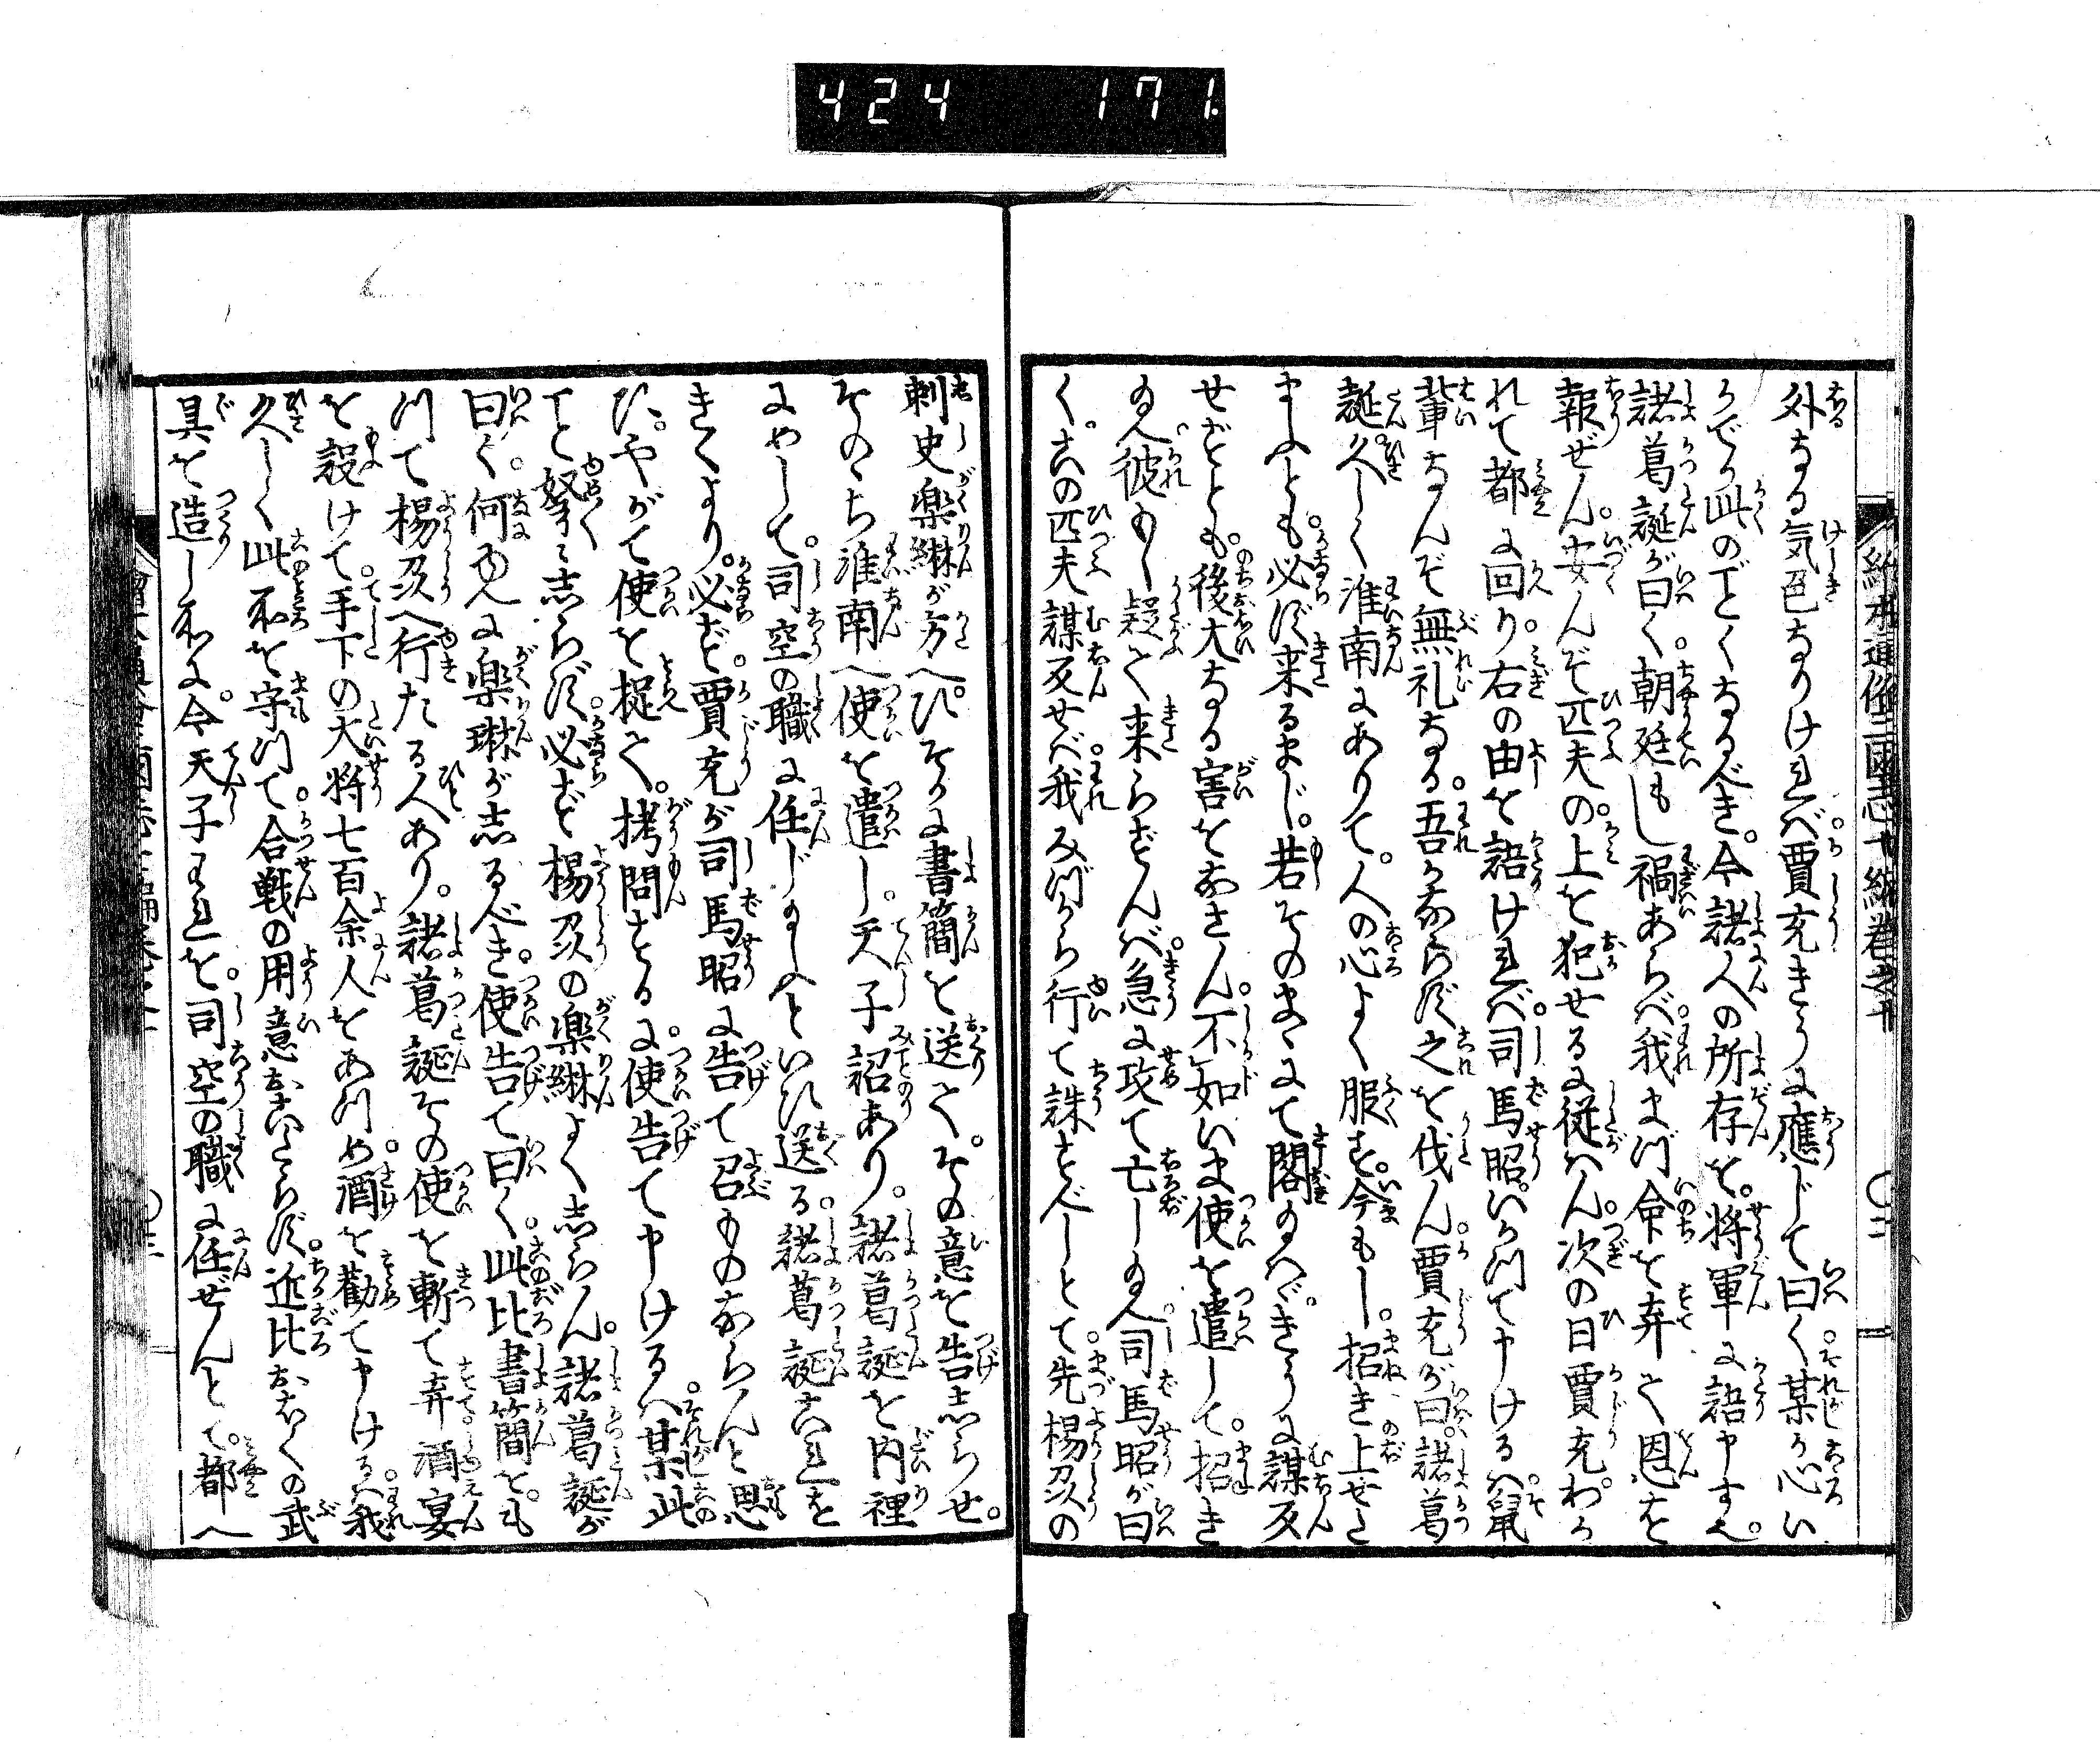 424 171.
外なる気色なりければ。賈充きうに應じて曰く某が心い
かでか此のごとくなるべき。今諸人の所存を。将軍に語申すべ。
諸葛誕が曰く。朝廷もし禍あらば。我まづ命を弃て恩を
報ぜん。安んぞ匹夫の。上を犯せるに従はん。次の日賈充。わか
れて都に回り。右の由を語ければ。司馬昭。いかつて申けるは。鼠
輩なんぞ無礼なる。吾かならず之を伐ん。賈充が曰。諸葛
誕。久しく淮南にありて。人の心よく服す。今もし。招き上せた
まふとも。必ず来るまじ。若そのまゝにて閣たまへば。きうに謀反
せずとも。後大なる害をなさん。不如いま使を遣して。招き
たまへ。彼もし疑て来らずんば。急に攻て亡したまへ。司馬昭が曰
く。この匹夫謀反せば。我みづから行て誅すべしとて。先楊州の
刺史楽綝が方へ。ひそかに書簡を送て。その意を告しらせ。
そのゝち淮南へ使を遣し。天子詔あり。諸葛誕を内裡
にめして。司空の職に任じたまふといひ送る。諸葛誕これを
きくより。必ず。賈充が司馬昭に告て召ものならんと思
ひ。やがて使を捉て。拷問するに。使告て申けるは。某此
てと努々しらず。必ず楊州の楽綝よくしらん。諸葛誕が
曰く。何ゆへに楽琳がしるべき。使告て曰く。此比書簡を。も
つて楊州へ行たる人あり。諸葛誕その使を斬て弃。酒宴
を設けて。手下の大将七百余人をあつめ。酒を勸て申けるは。我
久しく此所を守つて。合戦の用意おこたらず。近比おほくの武
具を造し所に。今天子これを。司空の職に任ぜんとて。都へ